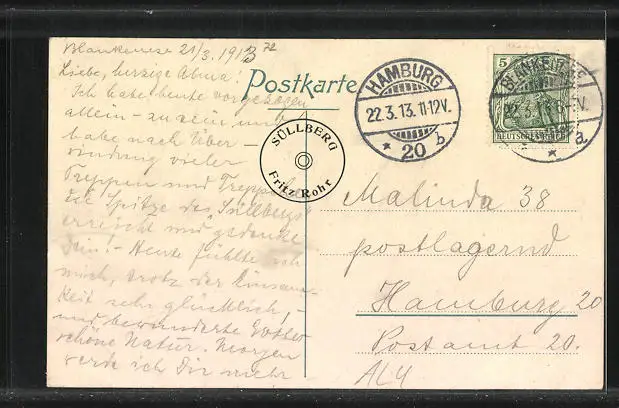 Blankenese 21/3. 1913 72
Liebe, herzige Alma!
Ich habe heute vorgezogen
allein zu sein und
habe nach Über-
windung vieler
Treppen und Treppchen
die Spitze des "Süllbergs"
erreicht und gedenke
Dein! - Heute fühlte ich
mich, trotz der Einsam-
keit sehr glücklich, -
und bewunderte Gottes
schöne Natur. Morgen
werde ich Dir mehr
Postkarte
SÜLLBERG
Fritz Rohr
HAMBURG
22.3.13.11-12V.
* 20 b
5
BLANKENESE
22.3.13
DEUTSCHES REICH
* a
Malinda 38
postlagernd
Hamburg 20
Postamt 20.